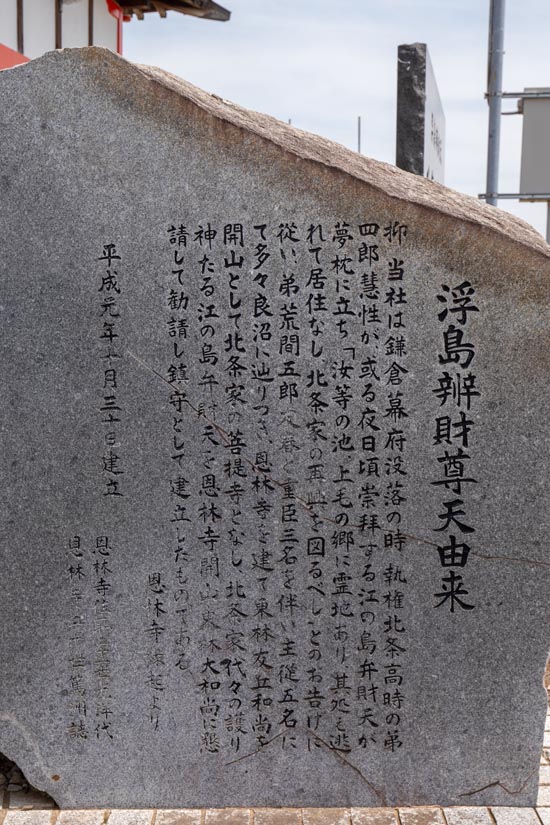 浮島辨財尊天由来
抑当社は鎌倉幕府没落の時執権北条高時の弟
四郎慧性が或る夜日頃崇拝する江の島弁財天が
夢枕に立ち「汝等の池上毛の郷に霊地あり其処を逃
れて居住なし北条家の再興を図るべし」とのお告げに
従い弟荒間五郎 と重臣三名を伴い主従五名に
て多々良沼に辿りつき恩林寺を建て東林友丘和尚を
開山として北条家の菩提寺となし北条家代々の護り
神たる江の島弁財天を恩林寺開山東林大和尚に懇
請して勧請し鎮守として建立したものである
恩林寺縁起より
平成元年十月三十日建立
恩林寺
恩林寺 篤州誌